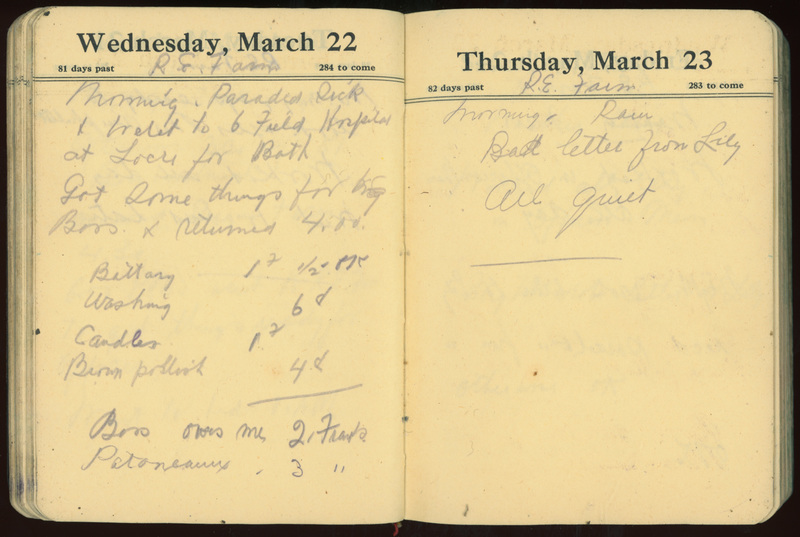 Wednesday, March 22
81 days past R.E. Farm 284 to come
Morning. Paraded Sick
& Went to 6 Field Hospital
at Locre for Bath
Got Some things for
Boss & returned 4.00.
Battery 1 1/2
Washing 6d
Candles 1
Brown polish 4d
Boss owes me 2. Franks
3 "
Thursday, March 23
82 days past R.E. Farm 283 to come
Morning. Rain
letter from Lily
All quiet